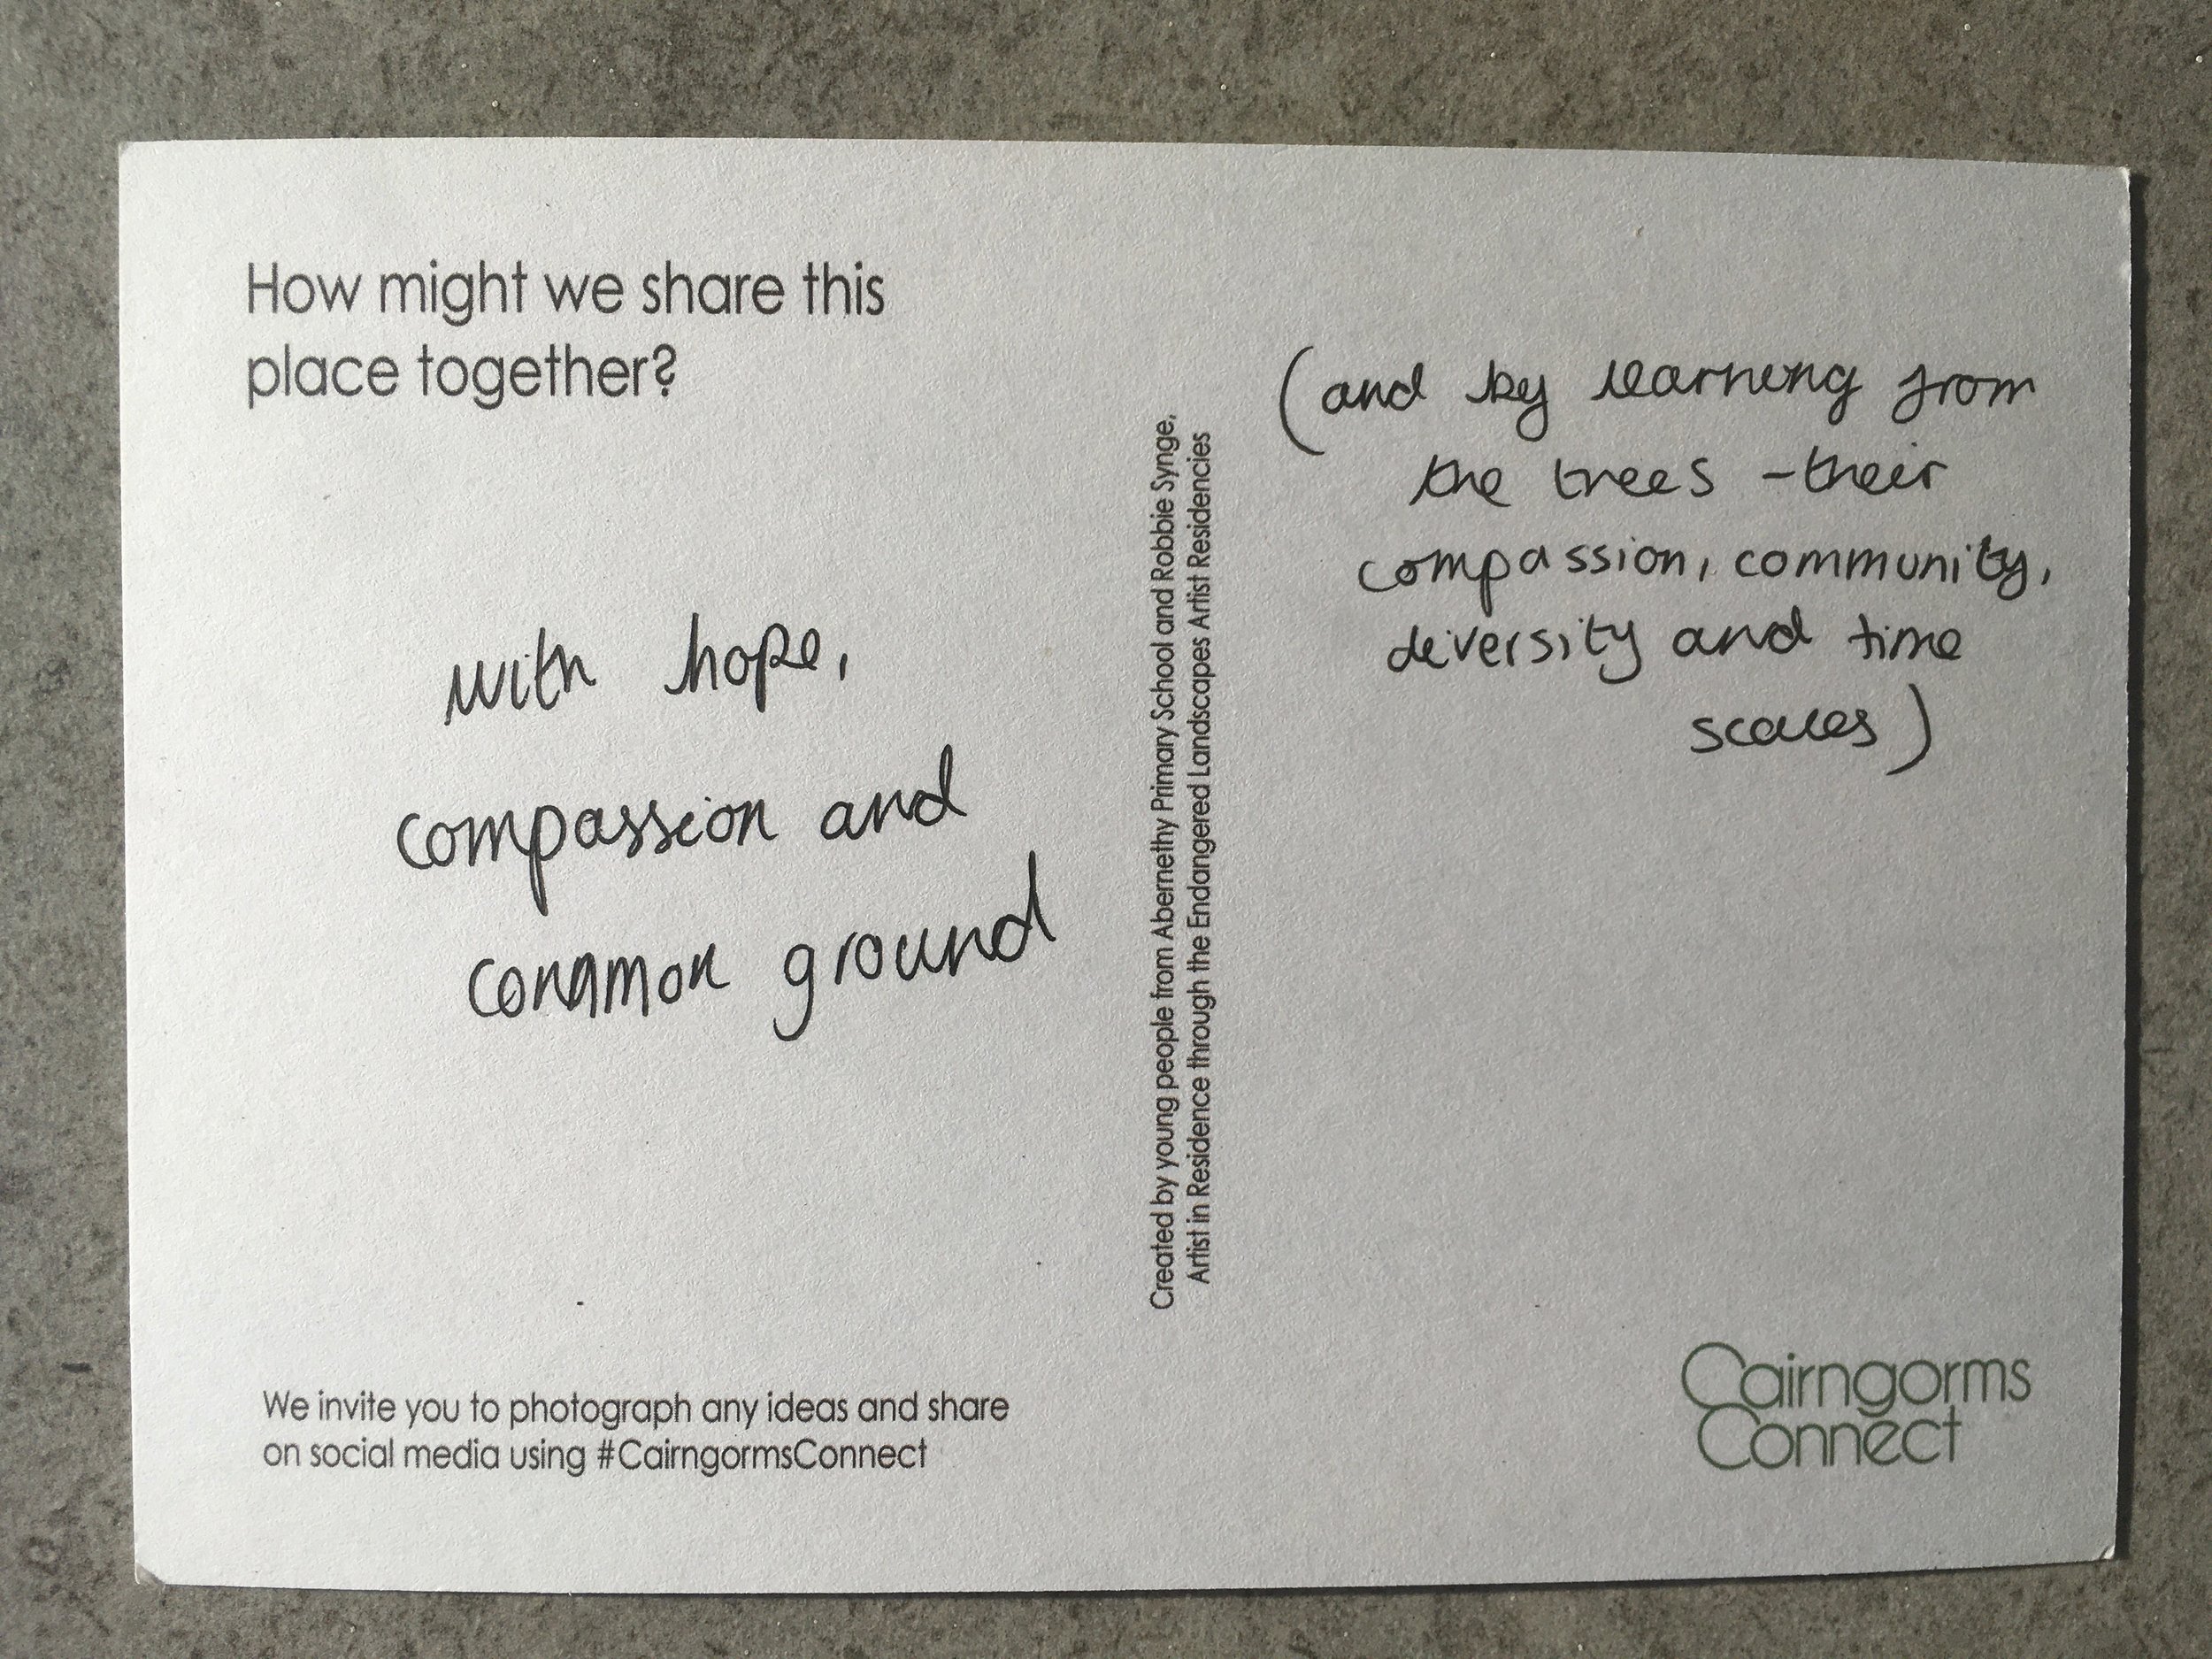 How might we share this
place together?
with hope,
compassion and
common ground
We invite you to photograph any ideas and share
on social media using #CairngormsConnect
Created by young people from Abernethy Primary School and Robbie Synge,
Artist in Residence through the Endangered Landscapes Artist Residencies
(and by learning from
the trees - their
compassion, community,
diversity and time
scales)
Cairngorms
Connect